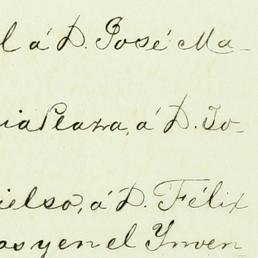 l á D. José Ma-
ia Plaza, á D. Jo-
ielso, á D. Félix
as y en el Ynven-